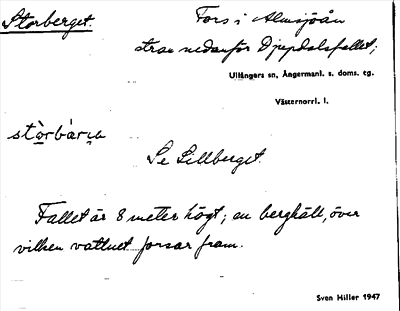 Storberget
Fors i Almsjöån
strax nedanför Djupdalsfallet;
Ullångers sn, Ångermanl. s. doms. tg.
Västernorrl. l.
Se Lillberget.
Fallet är 8 meter högt; en berghäll, över
vilken vattnet forsar fram.
Sven Hiller 1947